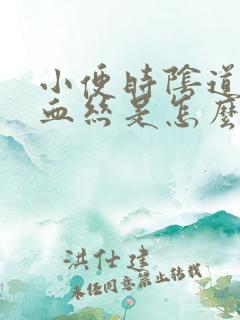 小便時陰道
血絲是怎麼
洪仕建
未經同意禁止轉載